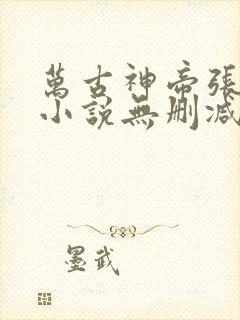 萬古神帝張
小說無刪減
墨武